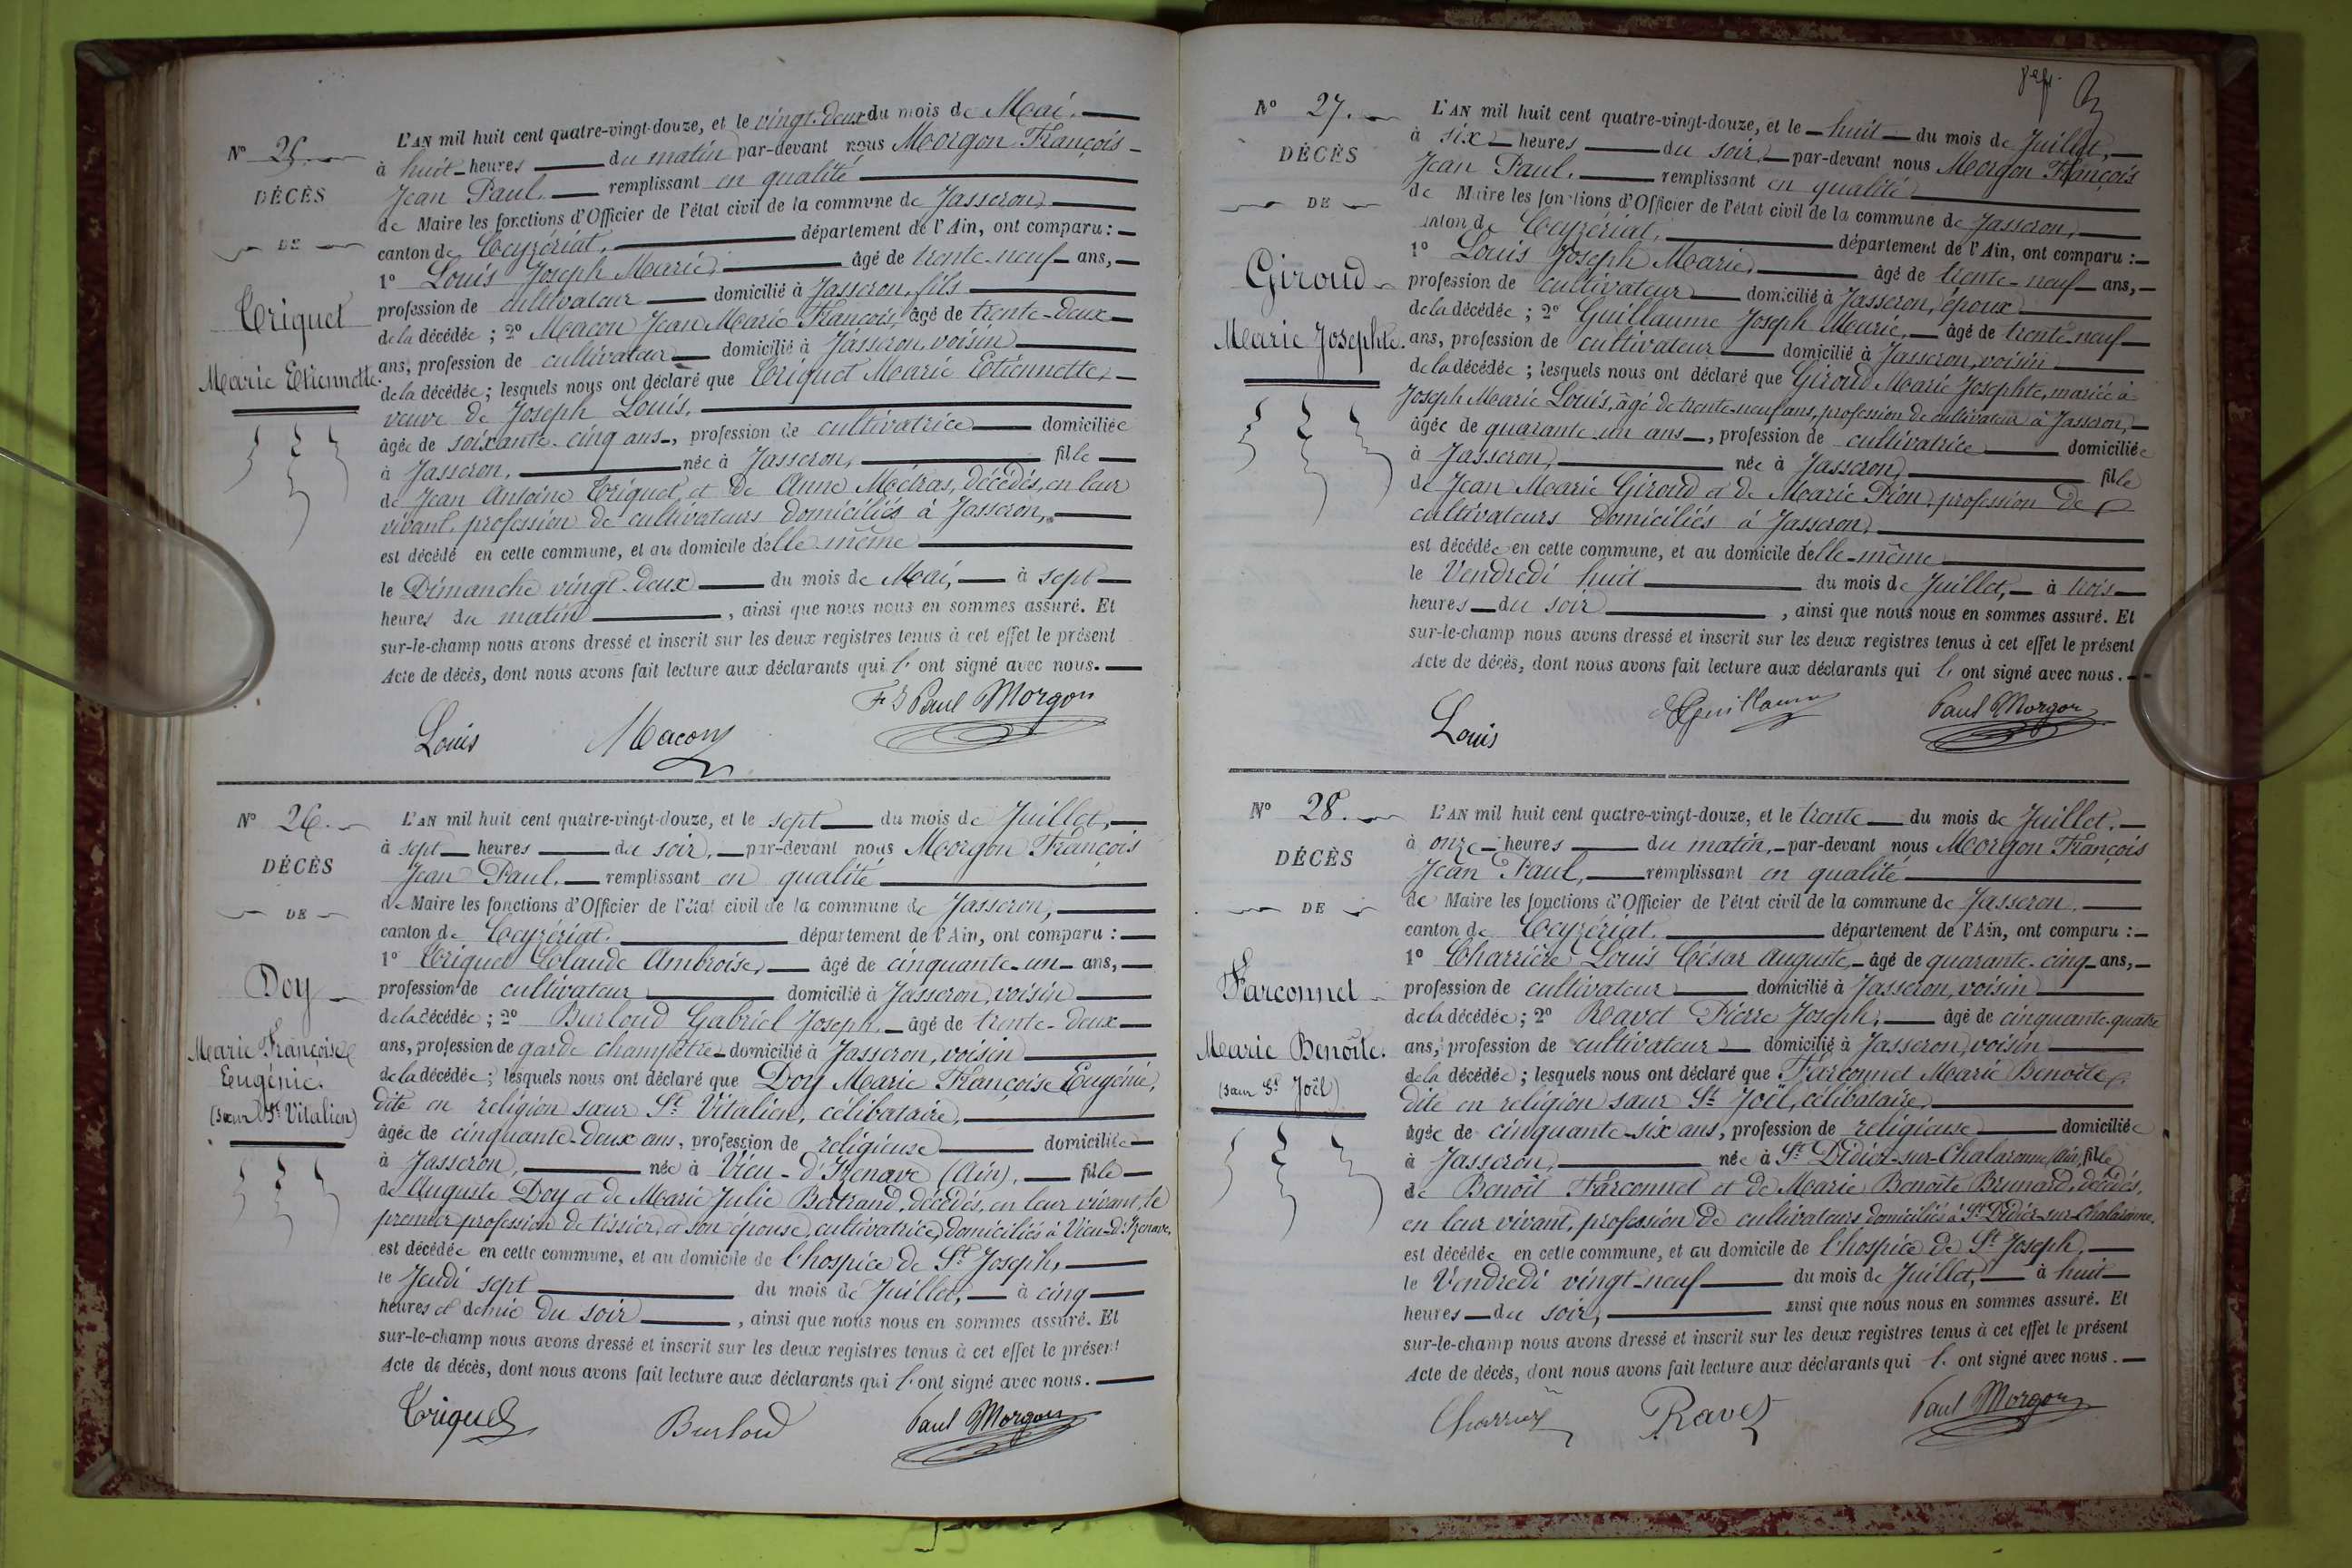 N° 25.
DÉCÈS
DE
Triquet
Marie Etiennette.
L'AN mil huit cent quatre-vingt-douze, et le vingt-deux du mois de Mai,
à huit heures du matin par-devant nous Morgon François
Jean Paul, remplissant en qualité
de Maire les fonctions d'Officier de l'état civil de la commune de Jasseron,
canton de Ceyzériat, département de l'Ain, ont comparu :
1° Louis Joseph Marie, âgé de trente-neuf ans,
profession de cultivateur domicilié à Jasseron, fils
de la décédée ; 2° Macon Jean Marie François, âgé de trente-deux
ans, profession de cultivateur domicilié à Jasseron, voisin
de la décédée ; lesquels nous ont déclaré que Triquet Marie Etiennette,
veuve de Joseph Louis,
âgée de soixante-cinq ans, profession de cultivatrice domiciliée
à Jasseron, née à Jasseron, fille
de Jean Antoine Triquet, et de Anne Médras, décédés, en leur
vivant, profession de cultivateurs domiciliés à Jasseron,
est décédé en cette commune, et au domicile d'elle-même
le Dimanche vingt-deux du mois de Mai, à sept
heures du matin, ainsi que nous nous en sommes assuré. Et
sur-le-champ nous avons dressé et inscrit sur les deux registres tenus à cet effet le présent
Acte de décès, dont nous avons fait lecture aux déclarants qui l'ont signé avec nous.
Louis Macon Fs Paul Morgon
N° 26.
DÉCÈS
DE
Doy
Marie Françoise
Eugénie.
(sœur St Vitalien)
L'AN mil huit cent quatre-vingt-douze, et le sept du mois de Juillet,
à sept heures du soir, par-devant nous Morgon François
Jean Paul, remplissant en qualité
de Maire les fonctions d'Officier de l'état civil de la commune de Jasseron,
canton de Ceyzériat, département de l'Ain, ont comparu :
1° Triquet Claude Ambroise, âgé de cinquante-un ans,
profession de cultivateur domicilié à Jasseron, voisin
de la décédée ; 2° Burloud Gabriel Joseph, âgé de trente-deux
ans, profession de garde champêtre domicilié à Jasseron, voisin
de la décédée ; lesquels nous ont déclaré que Doy Marie Françoise Eugénie,
dite en religion sœur St Vitalien, célibataire,
âgée de cinquante-deux ans, profession de religieuse domiciliée
à Jasseron, née à Vieu-d'Izenave (Ain), fille
de Auguste Doy et de Marie Julie Bertrand, décédés, en leur vivant, le
premier profession de tissier, et son épouse, cultivatrice, domiciliés à Vieu-d'Izenave,
est décédée en cette commune, et au domicile de l'hospice de St Joseph,
le Jeudi sept du mois de Juillet, à cinq
heures et demie du soir, ainsi que nous nous en sommes assuré. Et
sur-le-champ nous avons dressé et inscrit sur les deux registres tenus à cet effet le présent
Acte de décès, dont nous avons fait lecture aux déclarants qui l'ont signé avec nous.
Triquet Burloud Paul Morgon
N° 27.
DÉCÈS
DE
Giroud
Marie Josephte.
L'AN mil huit cent quatre-vingt-douze, et le huit du mois de Juillet,
à six heures du soir, par-devant nous Morgon François
Jean Paul, remplissant en qualité
de Maire les fonctions d'Officier de l'état civil de la commune de Jasseron,
canton de Ceyzériat, département de l'Ain, ont comparu :
1° Louis Joseph Marie, âgé de trente-neuf ans,
profession de cultivateur domicilié à Jasseron, époux
de la décédée ; 2° Guillaume Joseph Marie, âgé de trente-neuf
ans, profession de cultivateur domicilié à Jasseron, voisin
de la décédée ; lesquels nous ont déclaré que Giroud Marie Josephte, mariée à
Joseph Marie Louis, âgé de trente-neuf ans, profession de cultivateur à Jasseron,
âgée de quarante-un ans, profession de cultivatrice domiciliée
à Jasseron, née à Jasseron, fille
de Jean Marie Giroud et de Marie Pion, profession de
cultivateurs domiciliés à Jasseron,
est décédée en cette commune, et au domicile d'elle-même
le Vendredi huit du mois de Juillet, à trois
heures du soir, ainsi que nous nous en sommes assuré. Et
sur-le-champ nous avons dressé et inscrit sur les deux registres tenus à cet effet le présent
Acte de décès, dont nous avons fait lecture aux déclarants qui l'ont signé avec nous.
Louis Guillaume Paul Morgon
N° 28.
DÉCÈS
DE
Farconnet
Marie Benoîte.
(sœur St Joël)
L'AN mil huit cent quatre-vingt-douze, et le trente du mois de Juillet,
à onze heures du matin, par-devant nous Morgon François
Jean Paul, remplissant en qualité
de Maire les fonctions d'Officier de l'état civil de la commune de Jasseron,
canton de Ceyzériat, département de l'Ain, ont comparu :
1° Charrière Louis César Auguste, âgé de quarante-cinq ans,
profession de cultivateur domicilié à Jasseron, voisin
de la décédée ; 2° Ravet Pierre Joseph, âgé de cinquante-quatre
ans, profession de cultivateur domicilié à Jasseron, voisin
de la décédée ; lesquels nous ont déclaré que Farconnet Marie Benoîte,
dite en religion sœur St Joël, célibataire,
âgée de cinquante-six ans, profession de religieuse domiciliée
à Jasseron, née à St Didier-sur-Chalaronne, (Ain), fille
de Benoît Farconnet et de Marie Benoîte Brunard, décédés,
en leur vivant, profession de cultivateurs domiciliés à St Didier-sur-Chalaronne,
est décédée en cette commune, et au domicile de l'hospice de St Joseph,
le Vendredi vingt-neuf du mois de Juillet, à huit
heures du soir, ainsi que nous nous en sommes assuré. Et
sur-le-champ nous avons dressé et inscrit sur les deux registres tenus à cet effet le présent
Acte de décès, dont nous avons fait lecture aux déclarants qui l'ont signé avec nous.
Charrière Ravet Paul Morgon